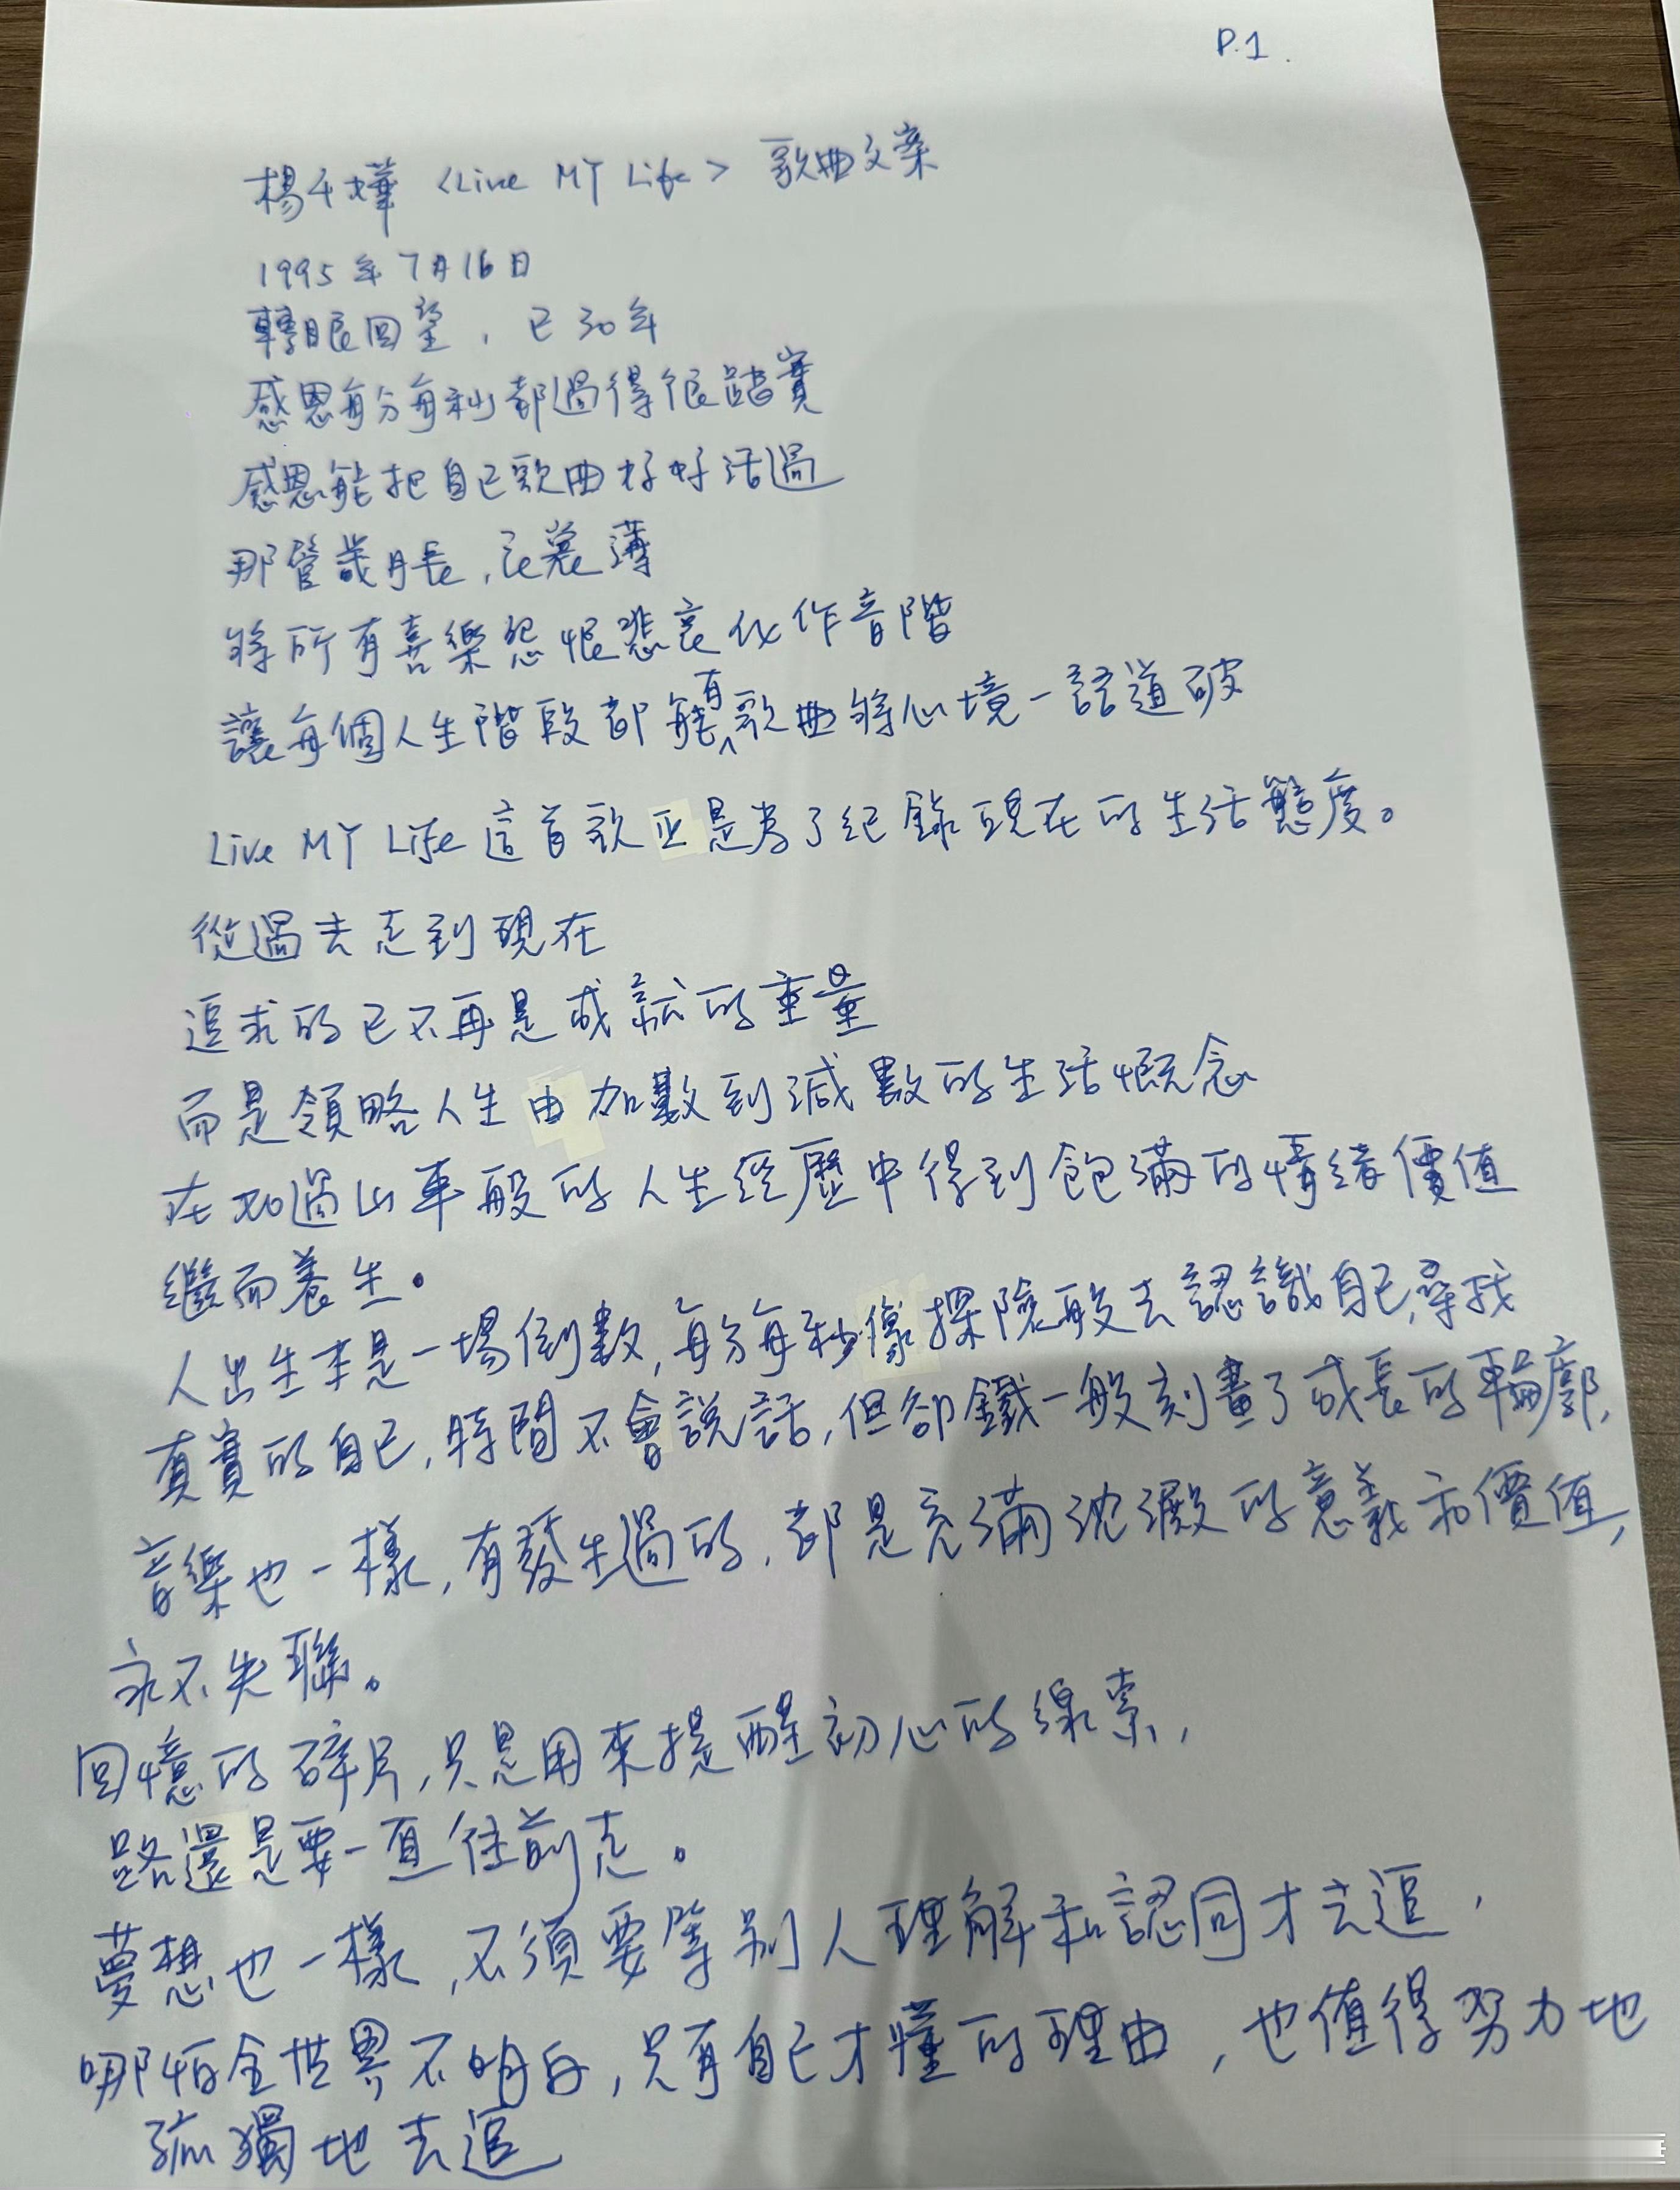 P.1
楊千嬅〈Live MY Life〉歌曲文案
1995年7月16日
轉眼回望，已30年
感恩每分每秒都過得很踏實
感恩能把自己歌曲好好活過
那管歲月長，衣裳薄
將所有喜樂怨恨悲哀化作音階
讓每個人生階段都能有歌曲將心境一語道破
Live MY Life 這首歌正是為了紀錄現在的生活態度。
從過去走到現在
追求的已不再是成就的重量
而是領略人生由加數到減數的生活概念
在如過山車般的人生經歷中得到飽滿的情緒價值
繼而養生。
人出生本是一場倒數，每分每秒像探險般去認識自己，尋找
真實的自己，時間不會說話，但卻鐵一般刻畫了成長的輪廓，
音樂也一樣，有發生過的，都是充滿沈澱的意義和價值，
永不失聯。
回憶的碎片，只是用來提醒初心的線索，
路還是要一直往前走。
夢想也一樣，不須要等別人理解和認同才去追，
哪怕全世界不明白，只有自己才懂的理由，也值得努力地
孤獨地去追